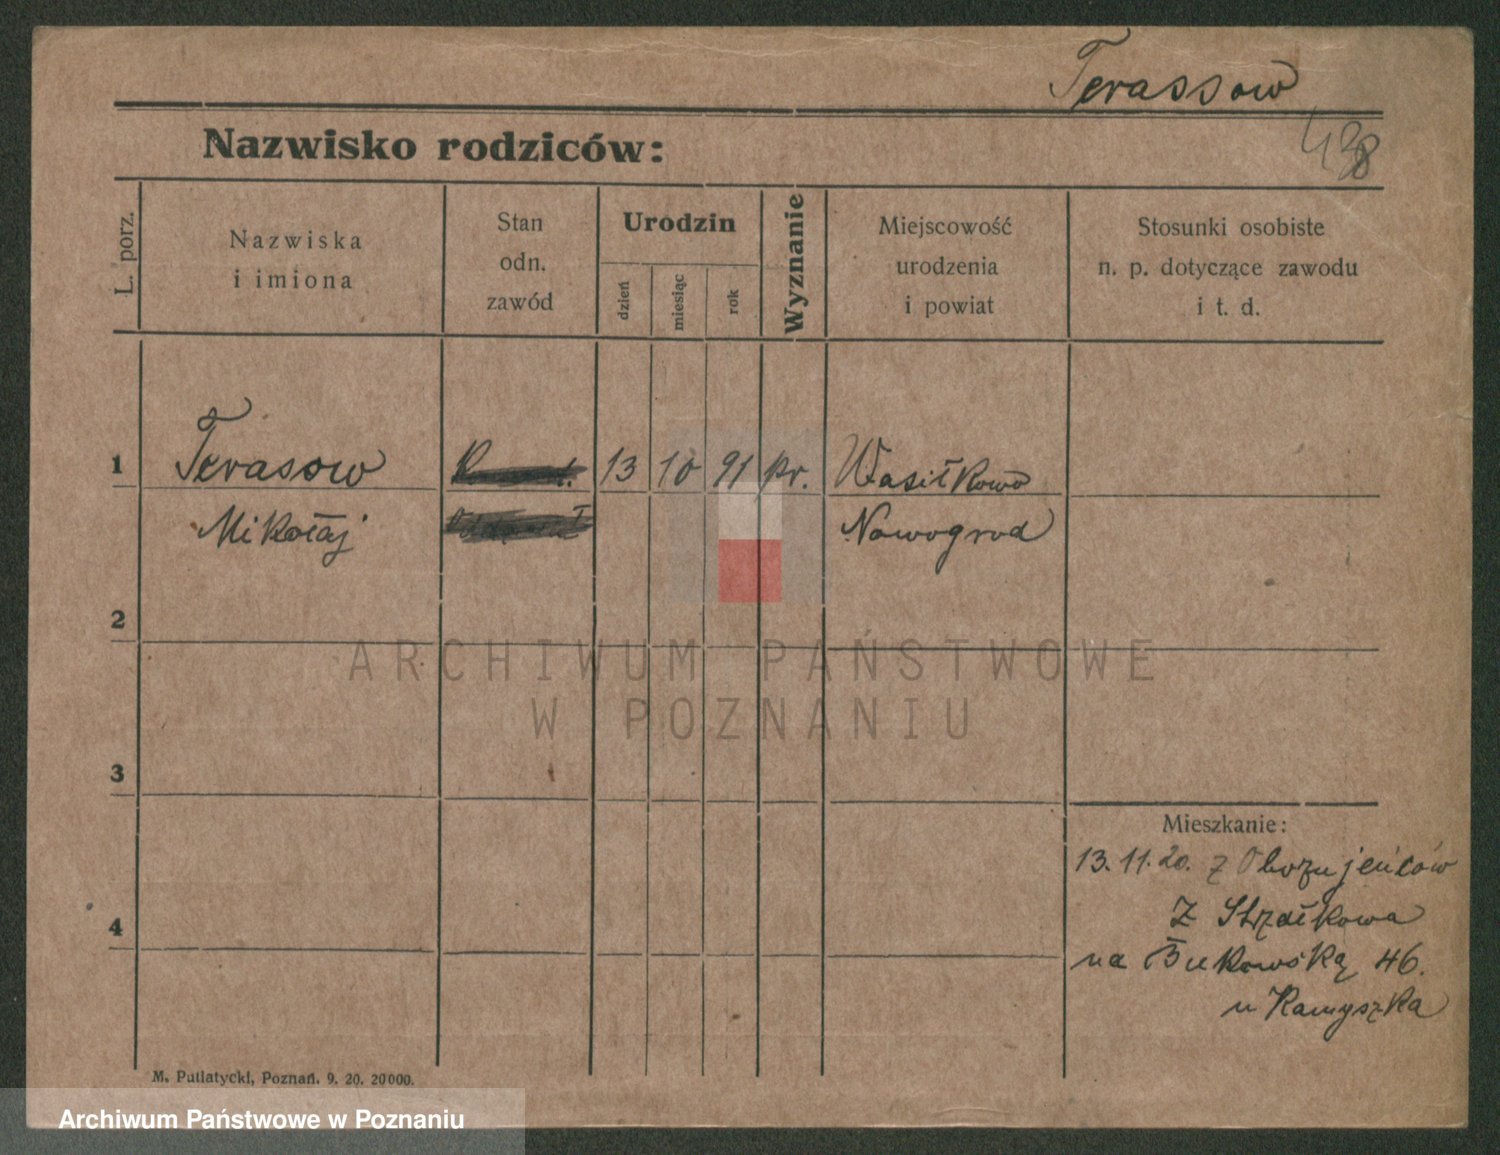 Terassow
438
Nazwisko rodziców:
L. porz.
Nazwiska
i imiona
Stan
odn.
zawód
Urodzin
dzień
miesiąc
rok
Wyznanie
Miejscowość
urodzenia
i powiat
Stosunki osobiste
n. p. dotyczące zawodu
i t. d.
1
Terasow
13
10
91
pr.
Wasiłkowo
Mikołaj
Nowogrod
2
3
4
Mieszkanie:
13.11.20. z
Z Strzałkowa
na Bukowską 46.
u Kamyszka
M. Putiatycki, Poznań. 9. 20. 20000.
ARCHIWUM PAŃSTWOWE
W POZNANIU
Archiwum Państwowe w Poznaniu